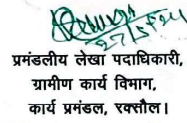 27/5/24
प्रमंडलीय लेखा पदाधिकारी,
ग्रामीण कार्य विभाग,
कार्य प्रमंडल, रक्सौल।